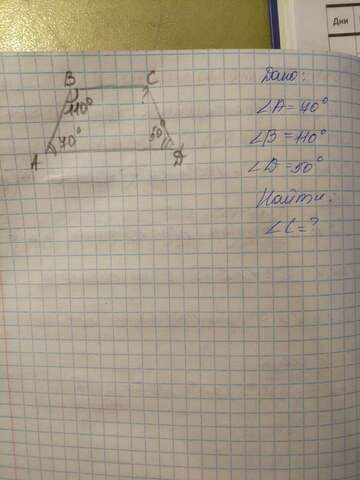 Дни
B C
110° ?
A 70° 50° D
Дано:
∠A = 70°
∠B = 110°
∠D = 50°
Найти:
∠C = ?